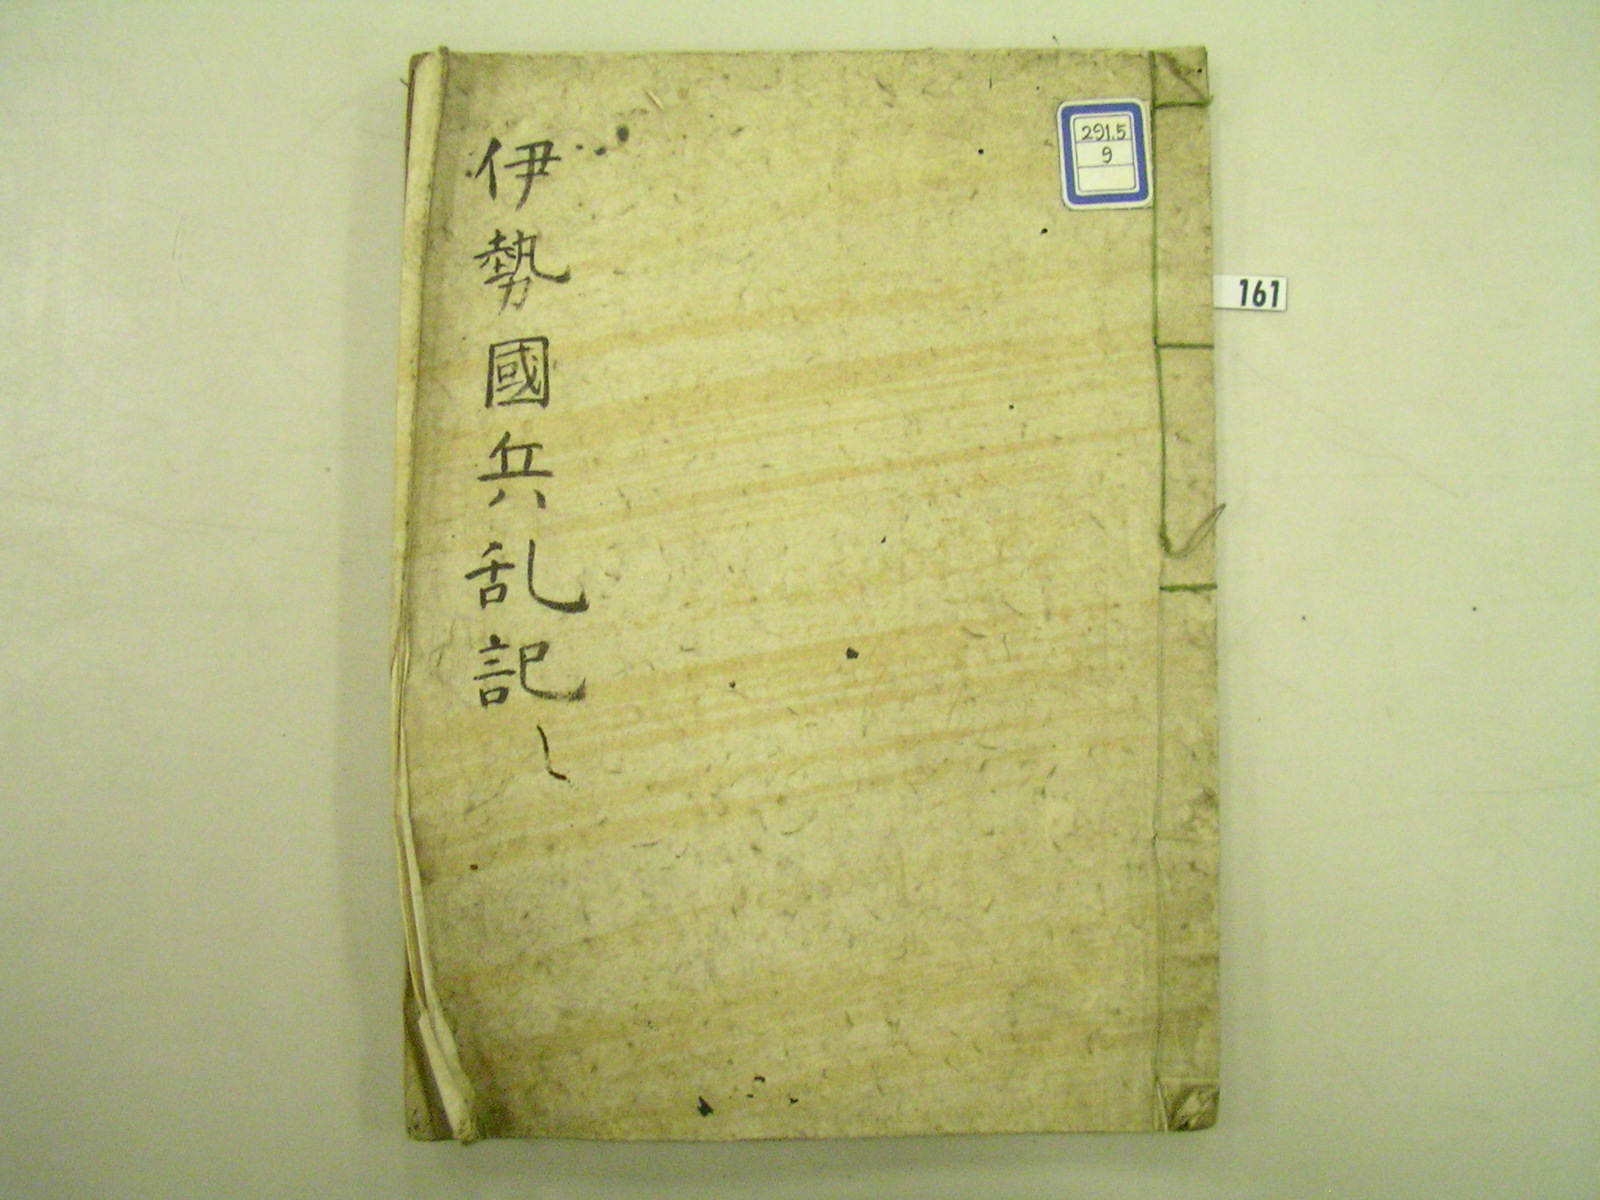 伊勢國兵乱記
291.5
9
161